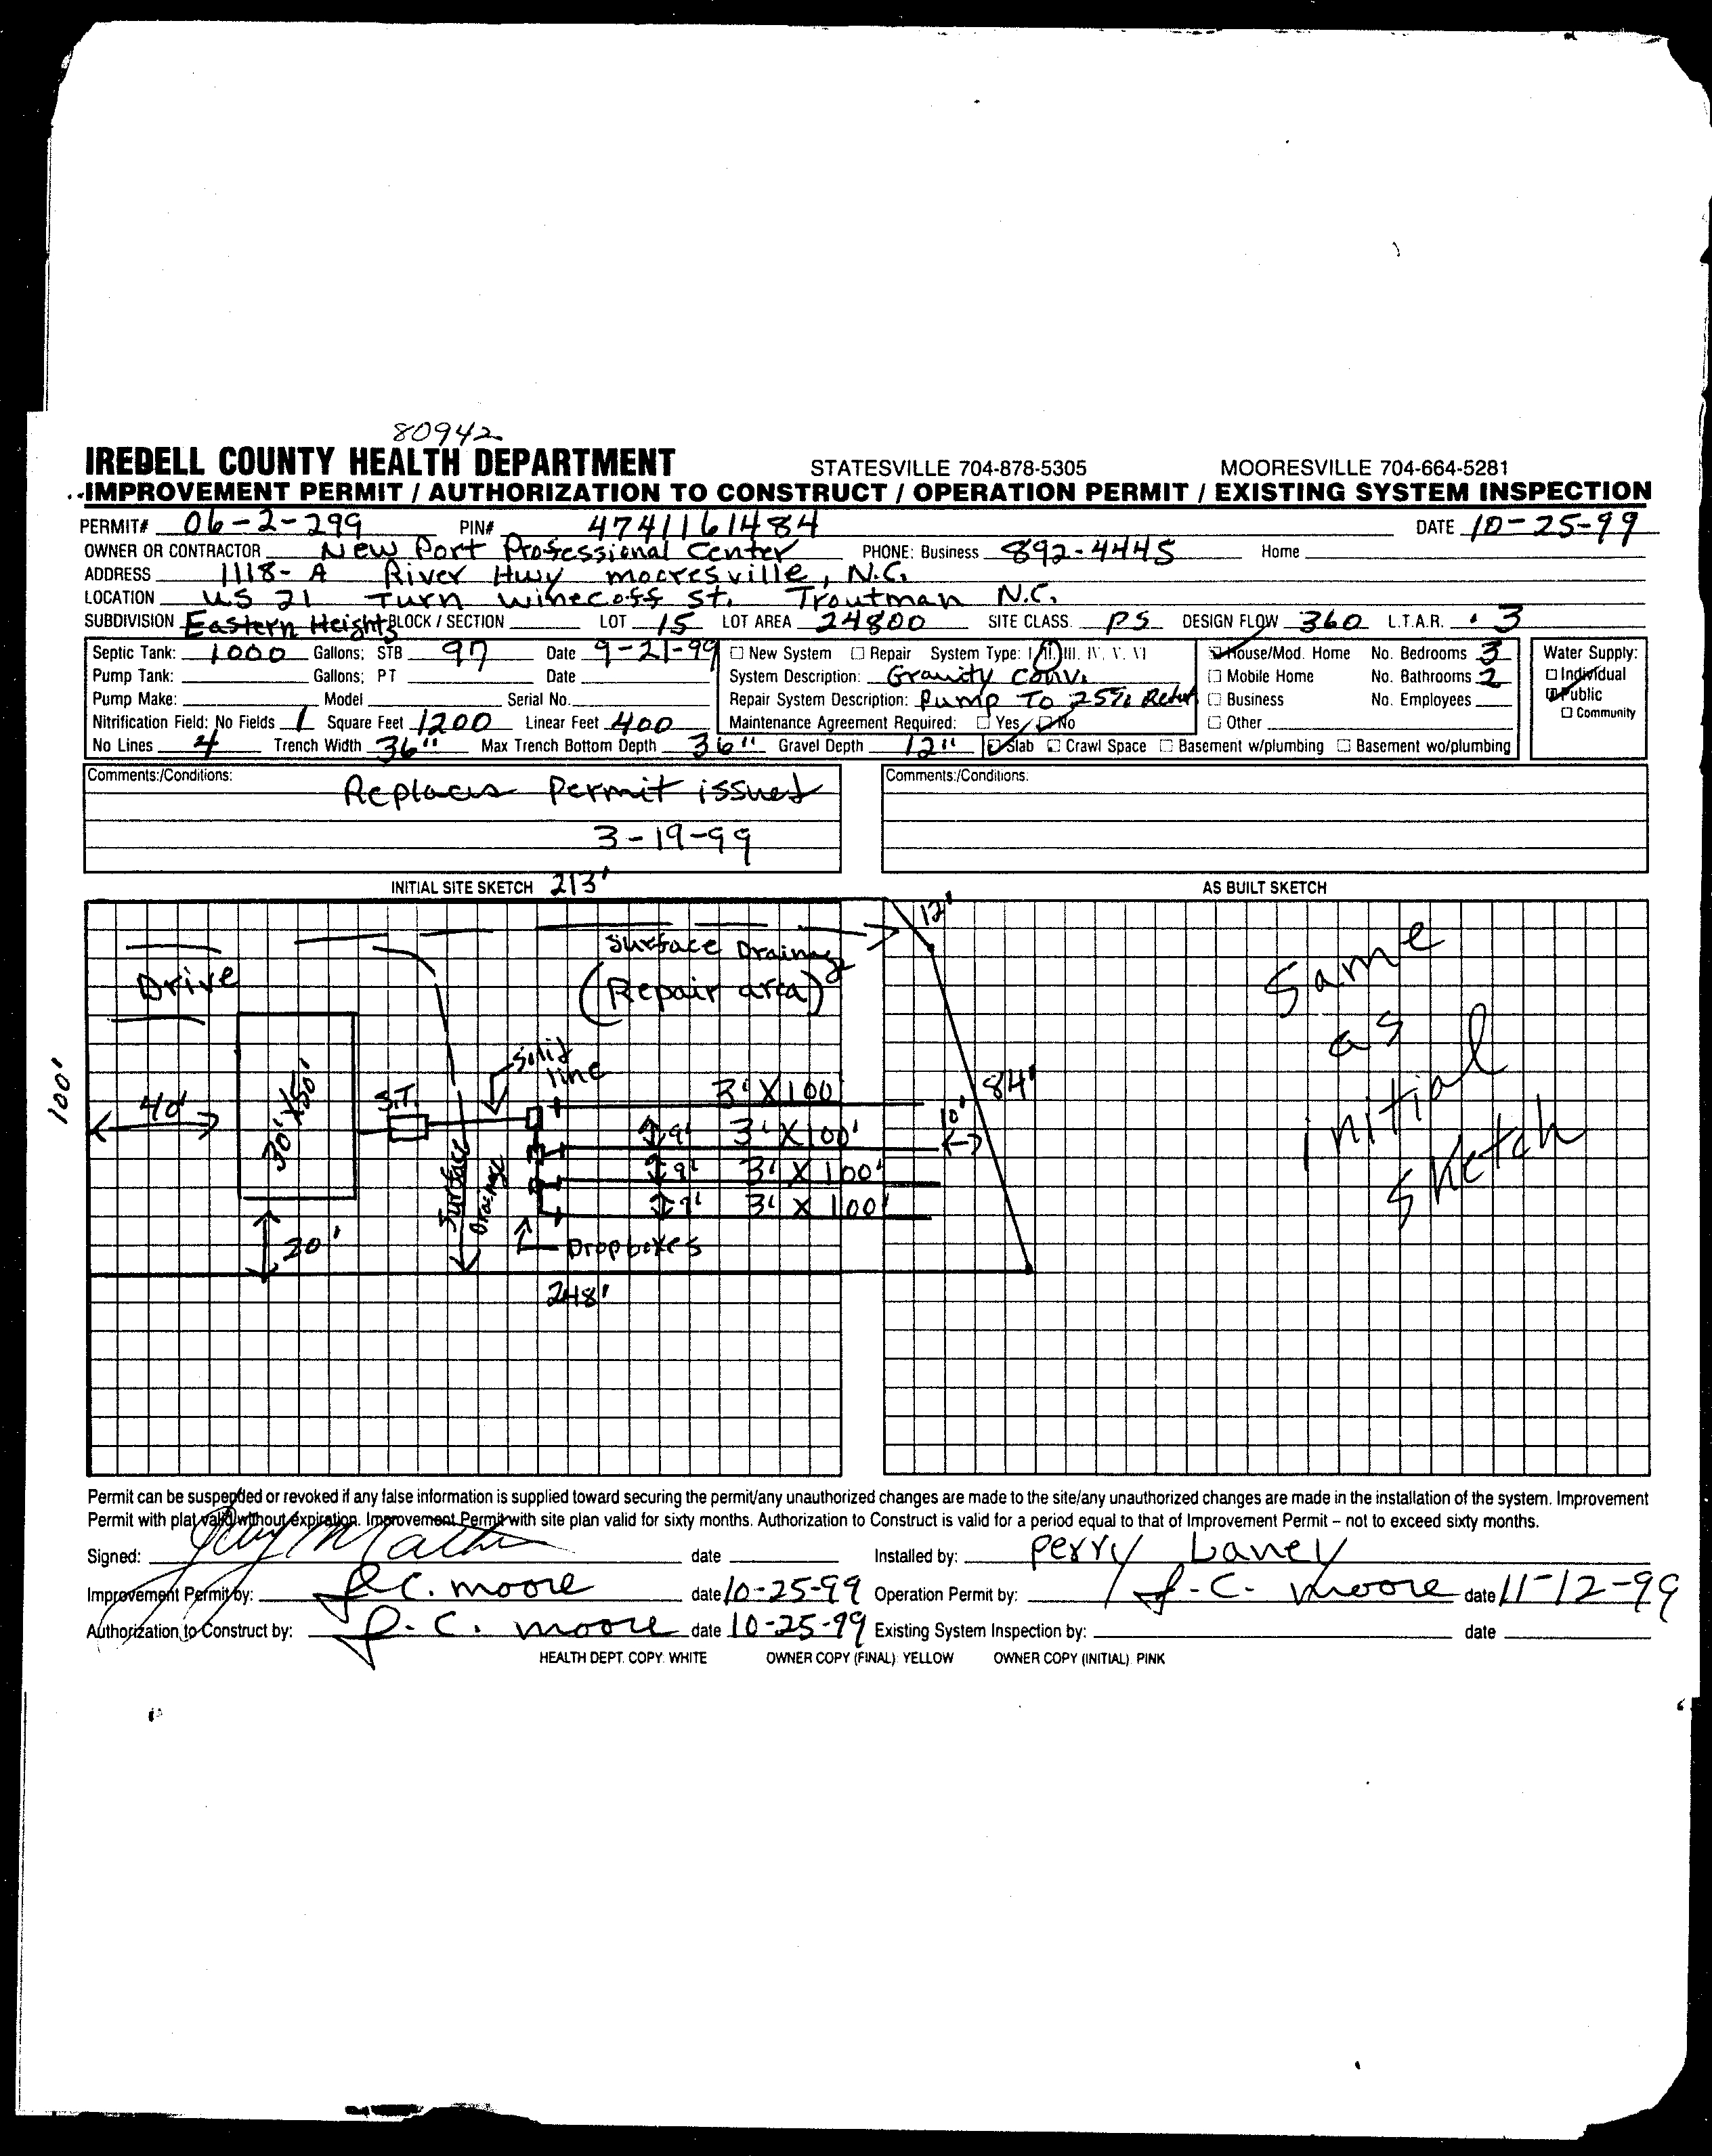 80942
IREDELL COUNTY HEALTH DEPARTMENT STATESVILLE 704-878-5305 MOORESVILLE 704-664-5281
IMPROVEMENT PERMIT / AUTHORIZATION TO CONSTRUCT / OPERATION PERMIT / EXISTING SYSTEM INSPECTION
PERMIT# 06-2-299 PIN# 4741161484 DATE 10-25-99
OWNER OR CONTRACTOR New Port Professional Center PHONE: Business 892-4445 Home
ADDRESS 1118-A River Hwy mooresville, N.C.
LOCATION US 21 Turn Winecoff St. Troutman N.C.
SUBDIVISION Eastern Heights BLOCK / SECTION LOT 15 LOT AREA 24800 SITE CLASS. PS DESIGN FLOW 360 L.T.A.R. .3
Septic Tank: 1000 Gallons; STB 97 Date 9-21-99 New System Repair System Type: I, II, III, IV, V, VI House/Mod. Home No. Bedrooms 3 Water Supply:
Pump Tank: Gallons; PT Date System Description: Gravity Conv. Mobile Home No. Bathrooms 2 Individual
Pump Make: Model Serial No. Repair System Description: Pump To 25% Redut Business No. Employees Public
Nitrification Field: No Fields 1 Square Feet 1200 Linear Feet 400 Maintenance Agreement Required: Yes No Other Community
No Lines 4 Trench Width 36" Max Trench Bottom Depth 36" Gravel Depth 12" Slab Crawl Space Basement w/plumbing Basement wo/plumbing
Comments:/Conditions: Replaces Permit issued Comments:/Conditions:
3-19-99
INITIAL SITE SKETCH 213' AS BUILT SKETCH
12'
Surface Drainage
Drive (Repair area)
Same
as
initial
sketch
Solid
line
100' 40' 30'X50' S.T. 3'X100 84'
9' 3'X100' 10'
9' 3'X100'
9' 3'X100'
Surface
Drainage
20' Drop boxes
248'
Permit can be suspended or revoked if any false information is supplied toward securing the permit/any unauthorized changes are made to the site/any unauthorized changes are made in the installation of the system. Improvement
Permit with plat valid without expiration. Improvement Permit with site plan valid for sixty months. Authorization to Construct is valid for a period equal to that of Improvement Permit – not to exceed sixty months.
Signed: date Installed by: Perry Laney
Improvement Permit by: J.C. moore date 10-25-99 Operation Permit by: J.C. moore date 11-12-99
Authorization to Construct by: J.C. moore date 10-25-99 Existing System Inspection by: date
HEALTH DEPT. COPY: WHITE OWNER COPY (FINAL): YELLOW OWNER COPY (INITIAL): PINK